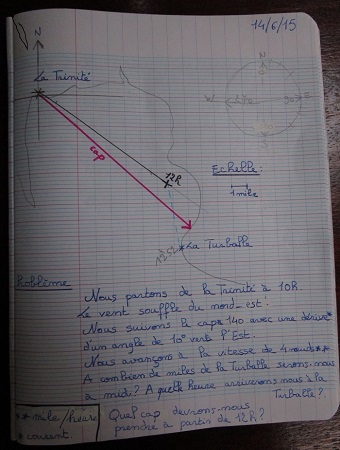 14/6/15
N
La Trinité
N
W
E
S
cap
12h
Echelle:
1 mile
La Turballe
Problème
Nous partons de la Trinité à 10h
Le vent souffle du nord-est.
Nous suivons le cap 140 avec une dérive*
d'un angle de 10° vers l'Est.
Nous avançons à la vitesse de 4 nœuds**
A combien de miles de la Turballe serons-nous
à midi? A quelle heure arriverons-nous à la
Turballe?
** mile/heure
* courant.
Quel cap devrons-nous
prendre à partir de 12h?